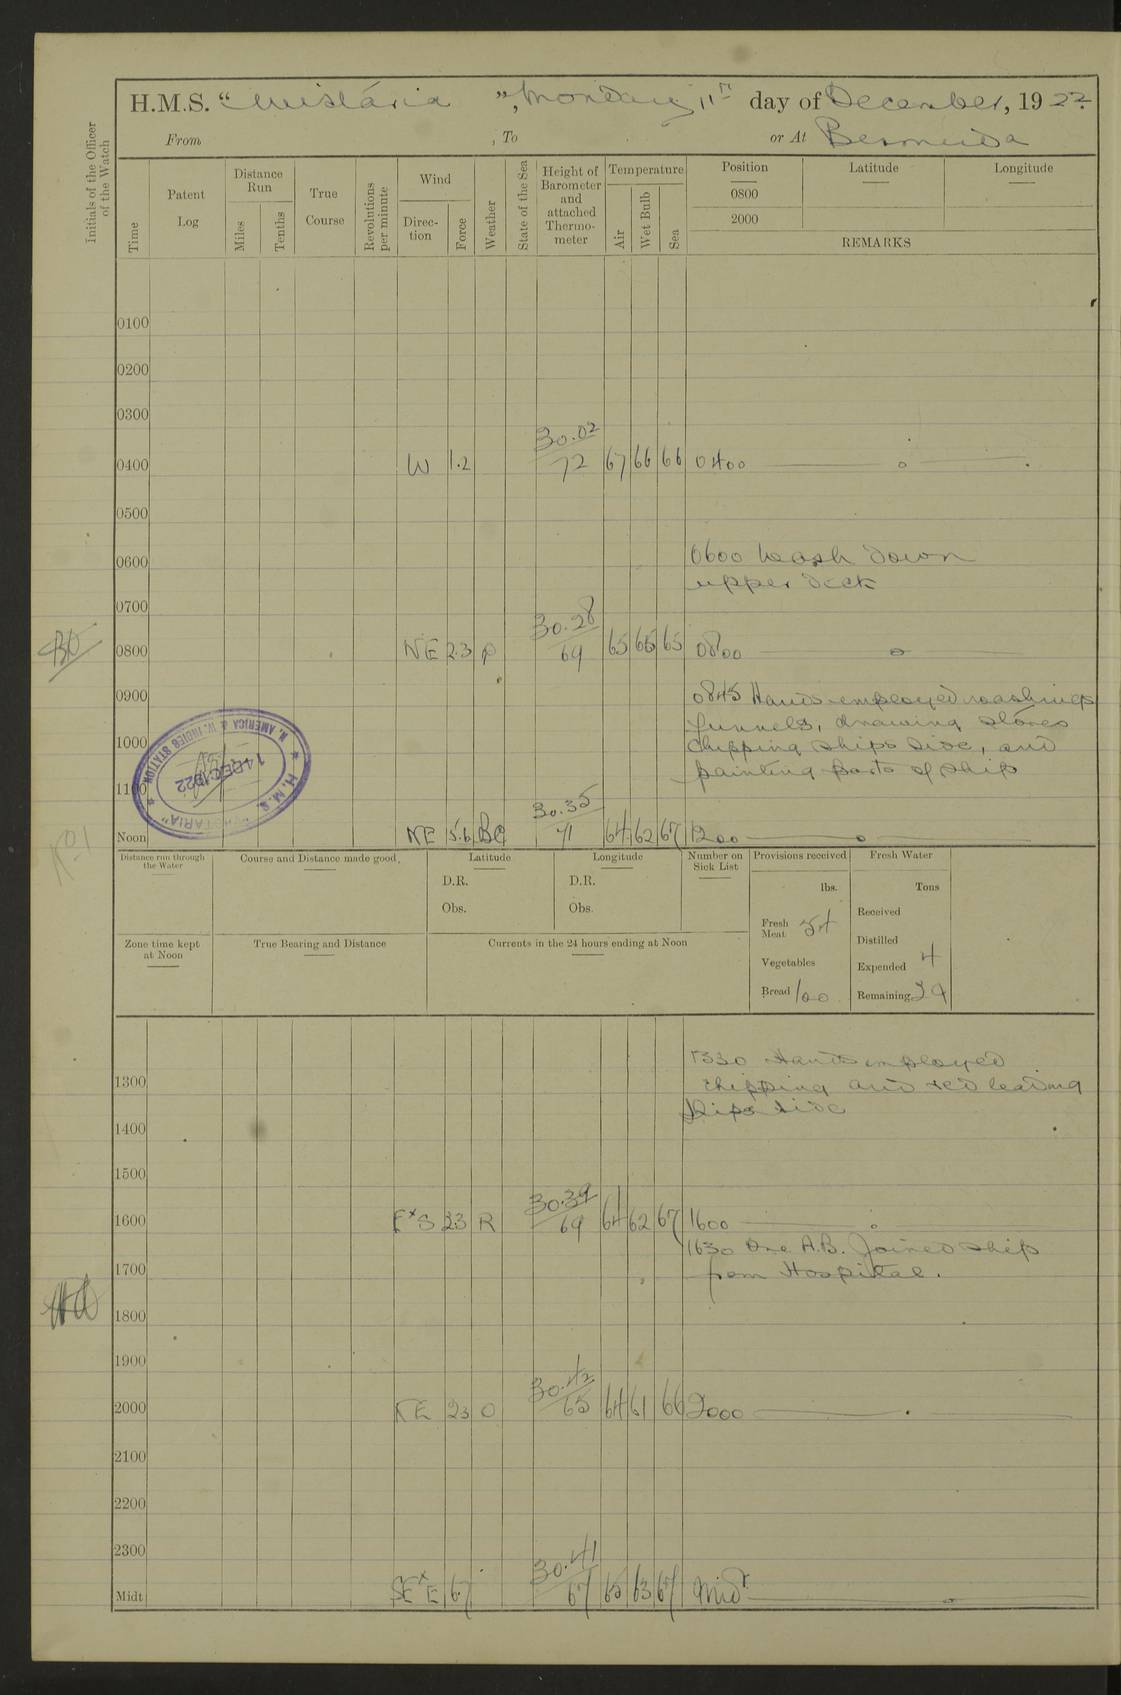 H.M.S. "Wistaria", Monday 11th day of December, 1922.
From , To or At Bermuda
Initials of the Officer of the Watch
Time
Patent Log
Distance Run
Miles
Tenths
True Course
Revolutions per minute
Wind
Direction
Force
Weather
State of the Sea
Height of Barometer and attached Thermometer
Temperature
Air
Wet Bulb
Sea
Position Latitude Longitude
0800
2000
REMARKS
0100
0200
0300
30.02
0400 W 1.2 72 67 66 66 0400
0500
0600 0600 Wash down
upper deck
0700
30.28
0800 NE 2.3 P 69 65 65 65 0800
0900 0845 Hands employed washing
funnels, drawing stores
1000 chipping ships side, and
painting parts of ship
1100
30.35
Noon NE 5.6 BC 71 64 62 67 1200
H.M.S. "WISTARIA"
N. AMERICA & W. INDIES STATION
14 DEC 1922
No 1
Distance run through the Water
Course and Distance made good.
Latitude
D.R.
Obs.
Longitude
D.R.
Obs.
Number on Sick List
Provisions received
lbs.
Fresh Meat 54
Vegetables
Bread 100
Fresh Water
Tons
Received
Distilled
Expended 4
Remaining 29
Zone time kept at Noon
True Bearing and Distance
Currents in the 24 hours ending at Noon
1330 Hands employed
1300 chipping and red leading
Ships side
1400
1500
30.39
1600 ExS 23 R 69 64 62 67 1600
1630 One A.B. Joined ship
1700 from Hospital.
1800
1900
30.42
2000 NE 23 O 65 64 61 66 2000
2100
2200
2300
30.41
Midt SExE 6.7 67 65 63 67 Midt